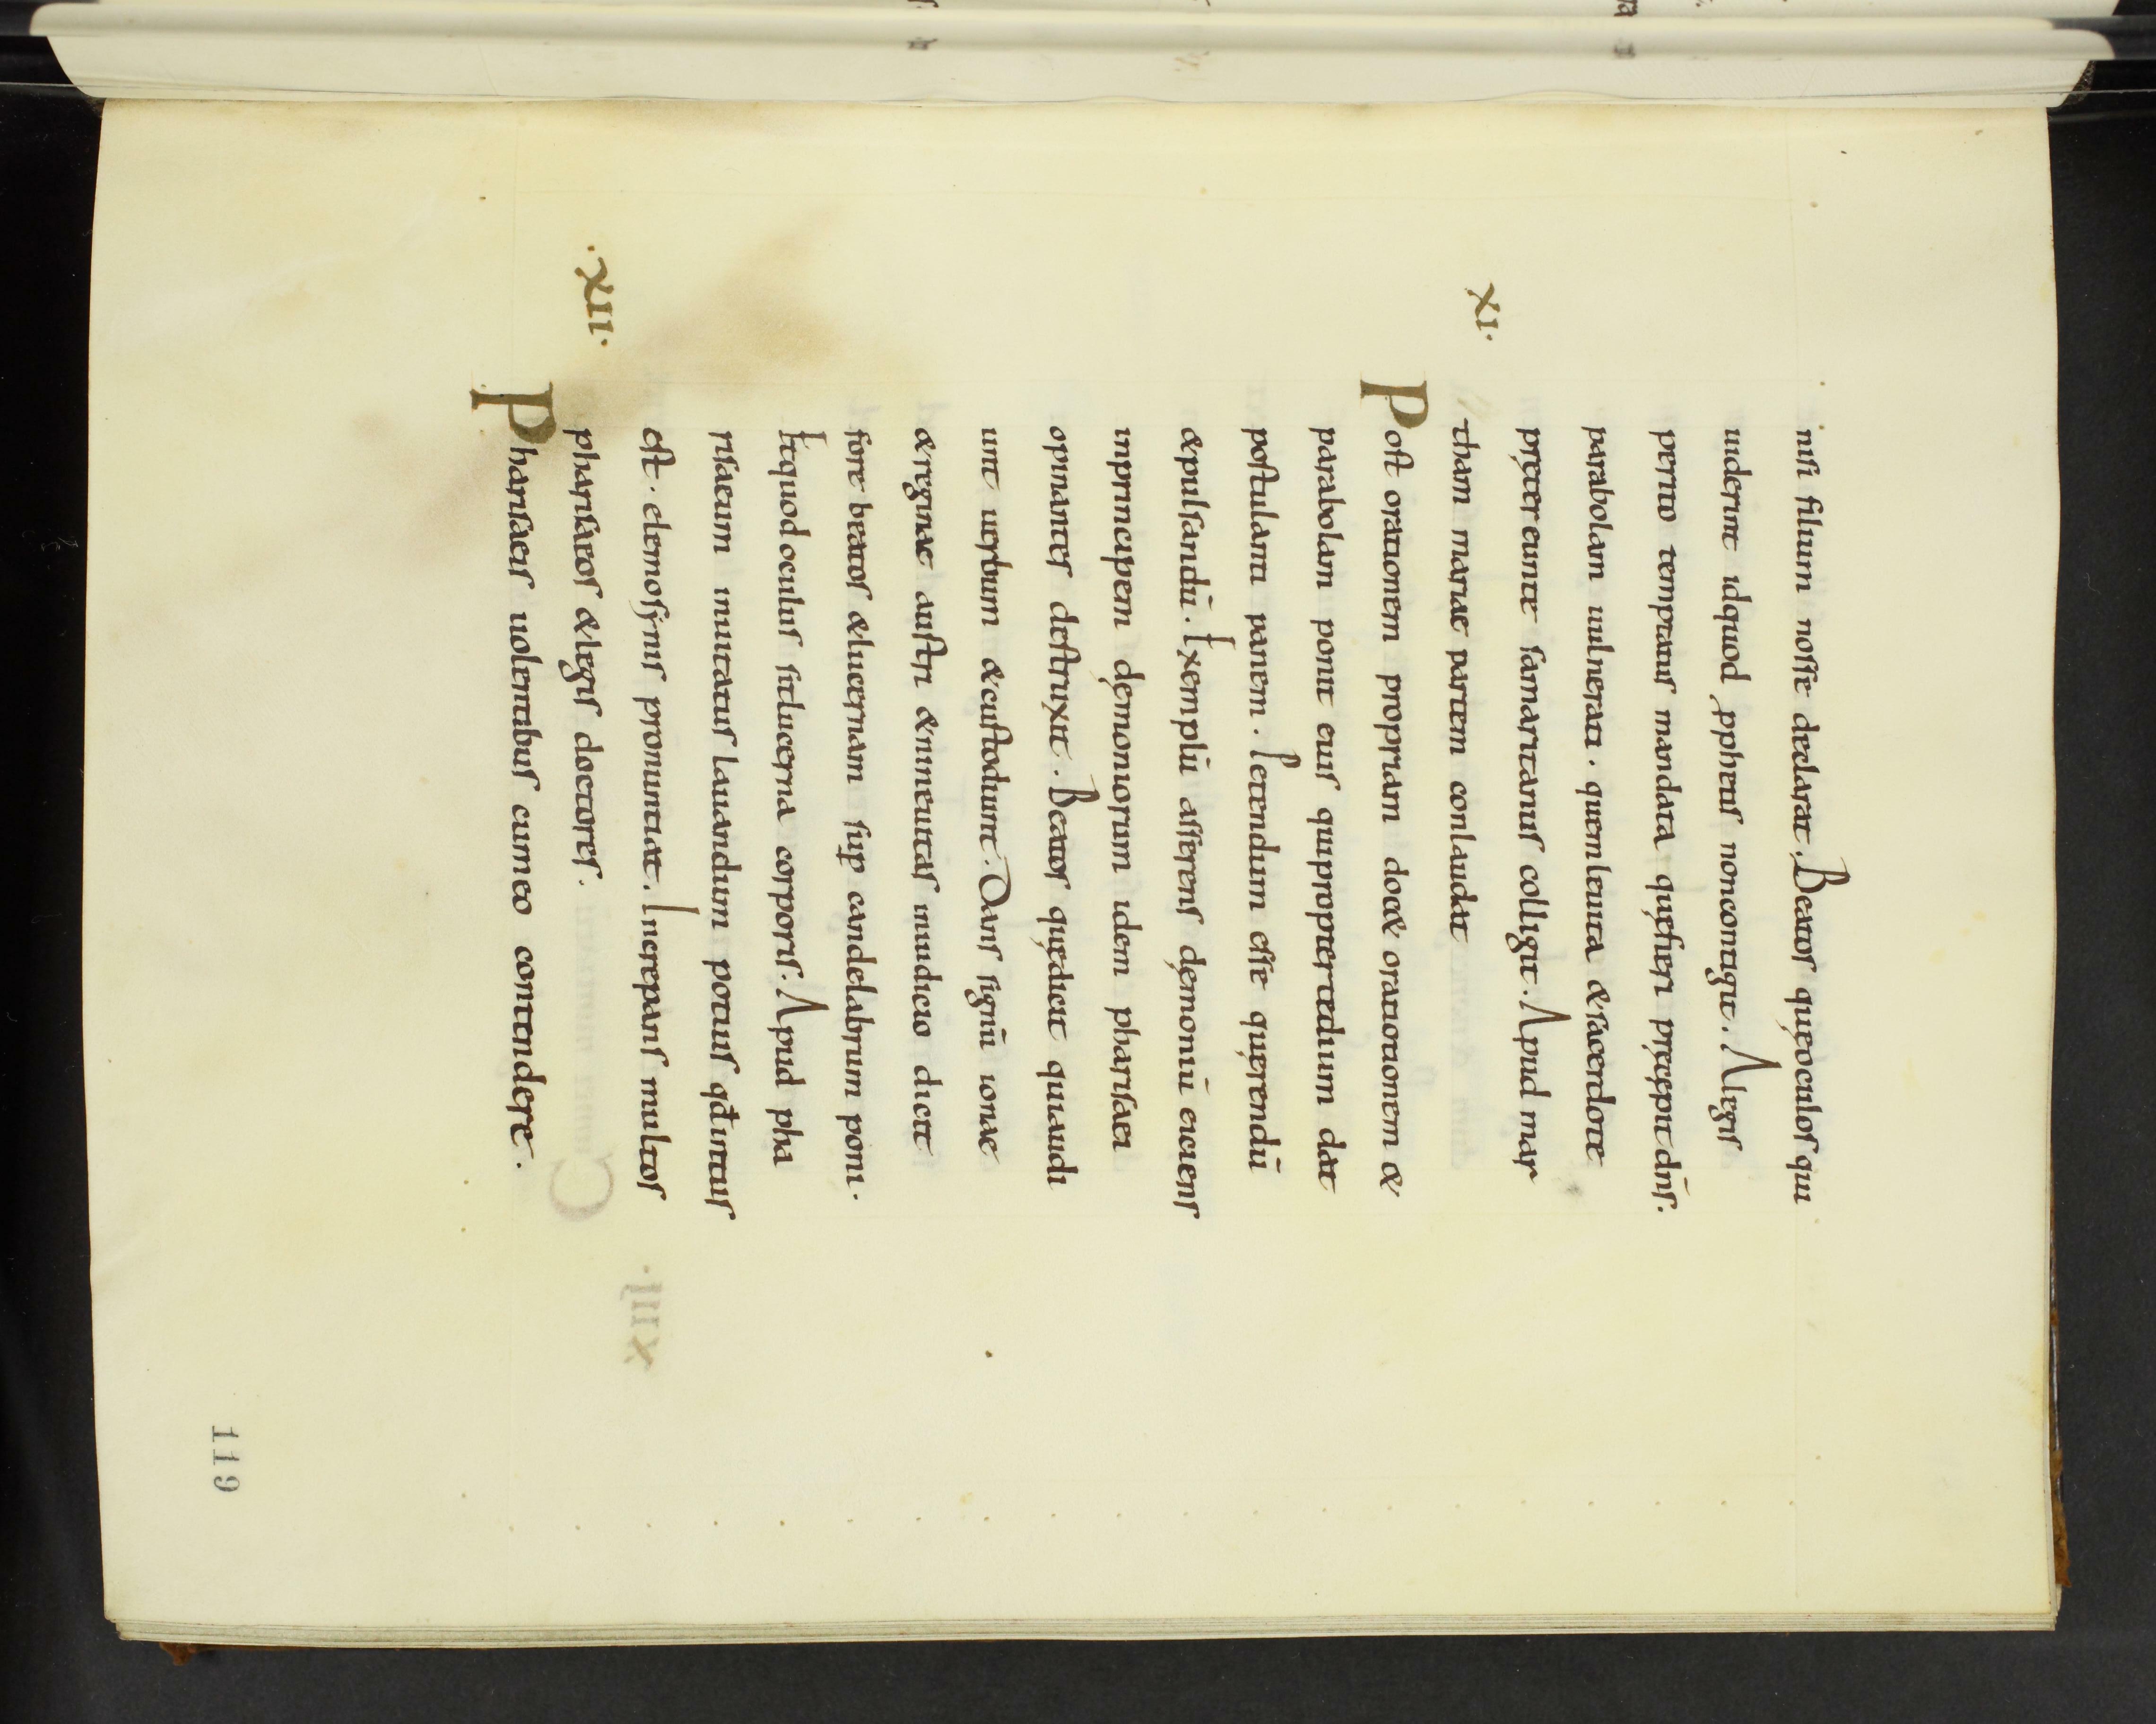 nisi filium nosse declarat. Beatos quęoculos qui
uiderint idquod pphetis noncontigit. Alegis
perito temptatus mandata quęfieri pręcepit dn̄s.
parabolam uulnerati. quem leuita &sacerdote
pręter eunte samaritanus colligit. Apud mar
tham mariae partem conlaudat
XI.
Post orationem propriam doc& oratiotionem &
parabolam ponit eius quipropterteđium dat
postulanti panem. Petendum esse quęrendū
&pulsandū. Exemplū asserens dęmoniū eiciens
inprincipem dęmoniorum idem pharisaei
opinantes destruxit. Beatos quędicit quiaudi
unt uerbum &custodiunt. Dans signū ionae
&reginae austri &nineuitas iniudicio dicit
fore beatos &lucernam sup̄ candelabrum poni.
Etquod oculus sitlucerna corporis. Apud pha
risaeum inuitatus lauandum potius qđintus
est. elemosynis pronuntiat. Increpans multos
pharisaeos &legis doctores.
.XII.
Pharisaeis uolentibus cumeo contendere.
119